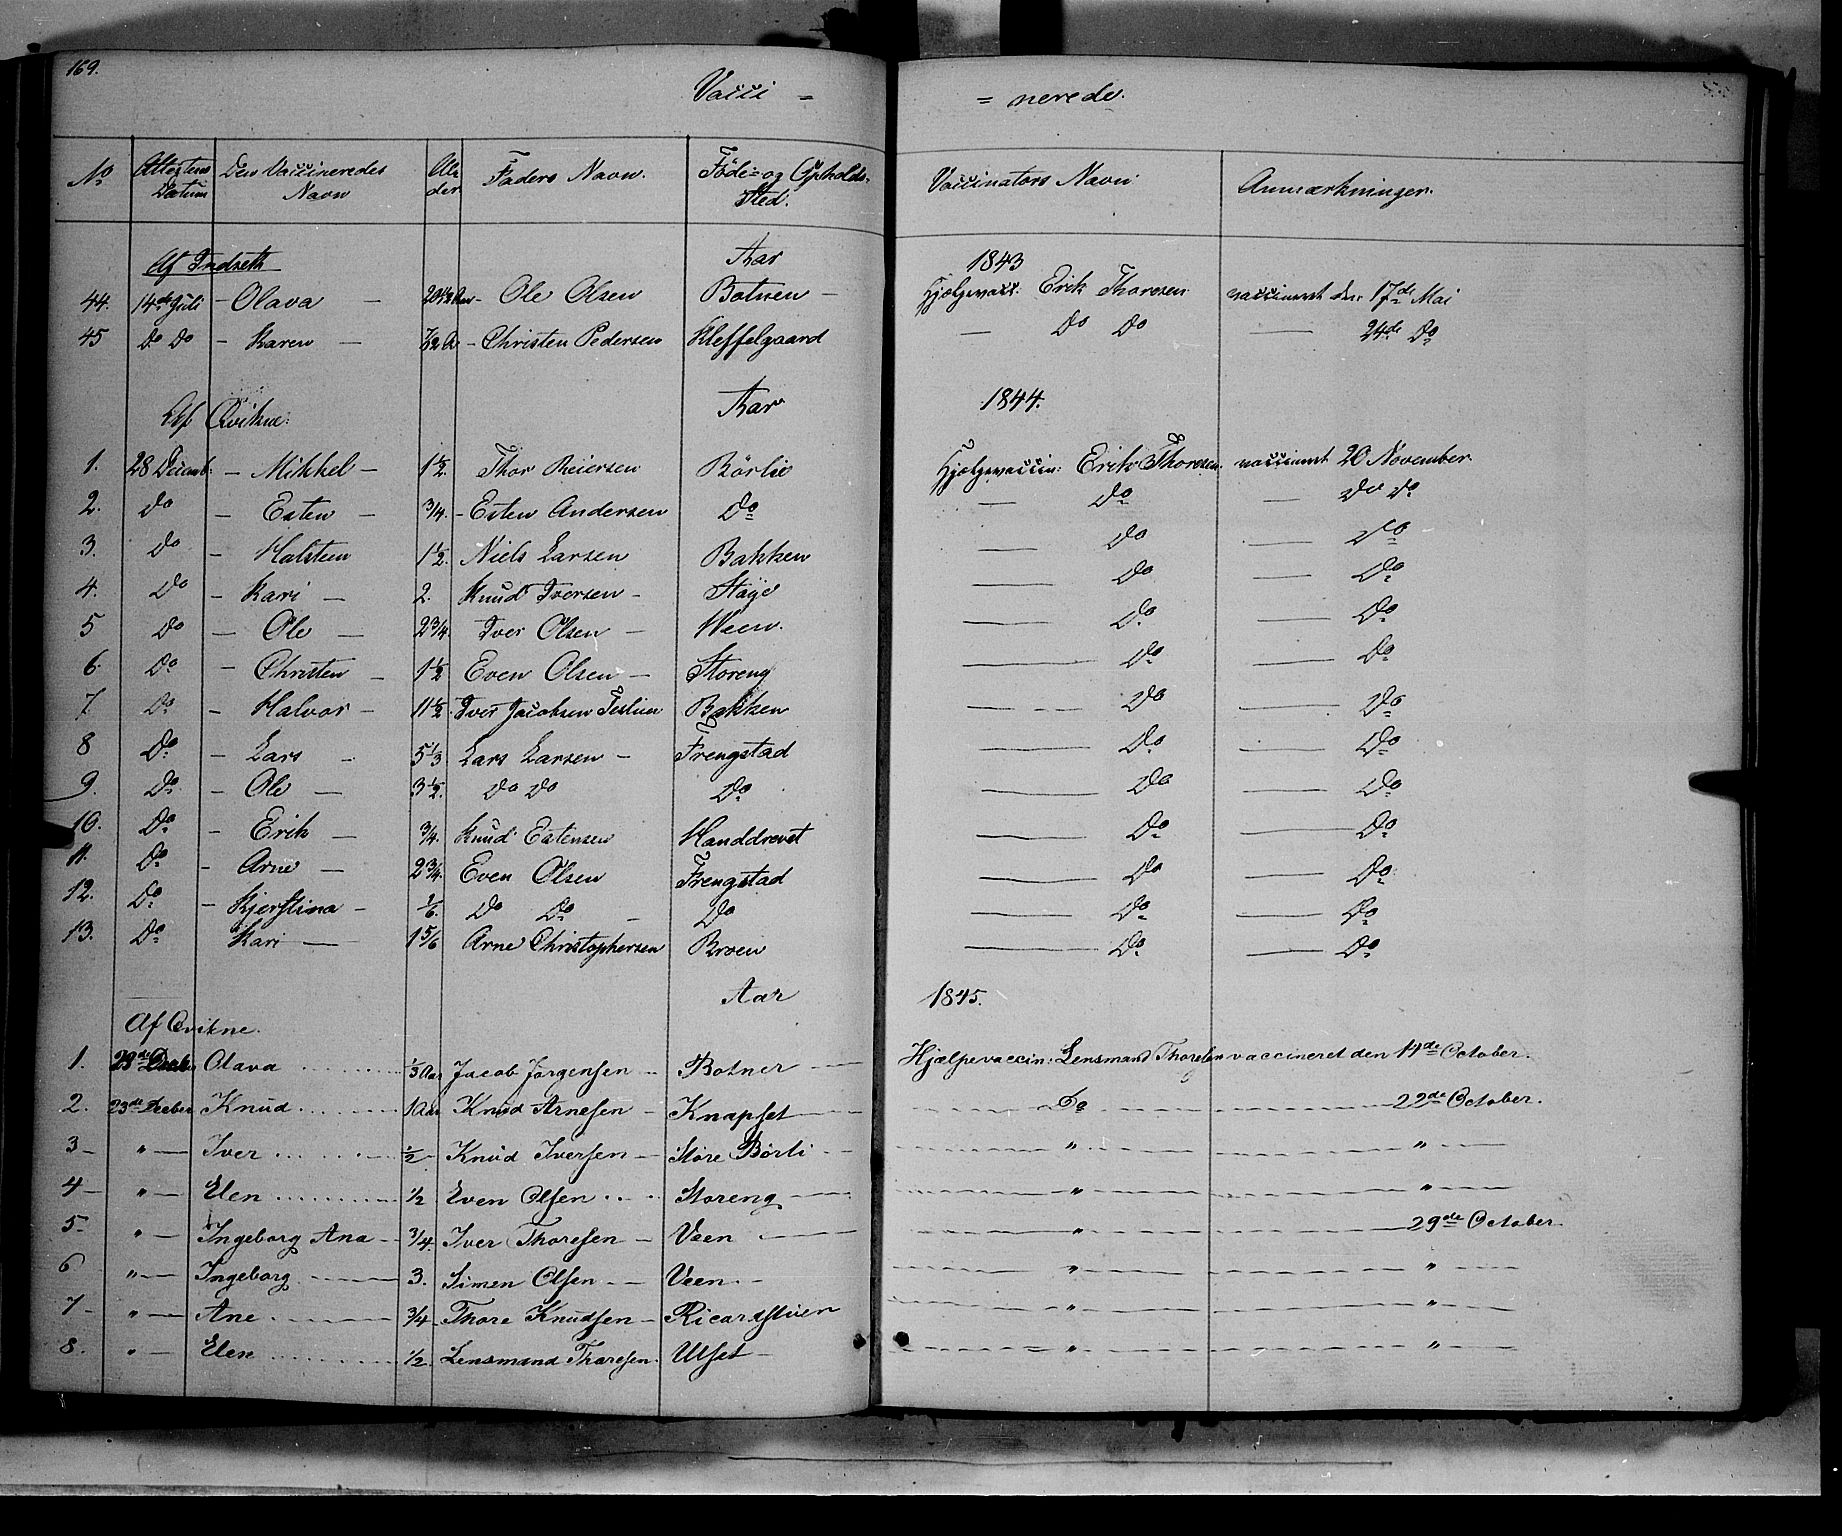 169.
Vacci = = nerede.
No Attestens Datum Den Vaccineredes Navn Alder Faders Navn. Føde- og Opholds-Sted. Vaccinators Navn Anmærkninger.
Af Indseth Aar 1843
44. 14de Juli - Olava - Ole Olsen Botnen - Hjelpevacc: Erik Thoresen vaccineret den 17de Mai
45 Do Do - Karen - Christen Pedersen Kleffelgaard - Do Do - 24de Do
Af Qvikne: Aar 1844.
1. 28 Decemb: - Mikkel - 1½. Thor Reiersen Børlie Hjælpevaccin: Erik Thoresen. vaccineret 20 November.
2. Do - Esten - ¾. - Esten Andersen Do - Do - Do Do
3. Do - Halsteen 1½. Niels Larsen Bakken - Do - Do
4. Do - Kari - 2. Knud Iversen - Støyé - Do - Do
5 Do - Ole - 2¾. Iver Olsen - Veen. - Do - Do
6. Do - Christen - 1½ Even Olsen - Storeng - Do - Do
7. Do - Halvor - 11½. Iver Jacobsen Bakken - Do - Do
8 Do - Lars - 5⅓ Lars Larsen - Frengstad - Do - Do
9. Do - Ole - 3½. Do Do Do - Do - Do
10. Do - Erik - ¾. Knud Estensen Handdrevet - Do - Do
11. Do - Arne - 2¾. Even Olsen Frengstad - Do - Do
12. Do - Kjerstina - ⅙. Do Do - Do - Do - Do
13. Do Kari - 1⅚ Arne Christophersen Broen - Do - Do
Aar 1845.
Af Qvikne.
1. Olava ........ ⅓ Aar Jacob Jørgensen - Botner - Hjælpevaccin: Lensmand Thoresen vaccineret den 14de October.
2. 23de Decber Knud ....... 1 Aar Knud Arnesen - Knapset - Do - 22de October.
3 - " - Iver ....... ½ - Knud Iversen - Store Børli - " - " -
4 - " - Elen ........ ½ Even Olsen .... Storeng - " - " -
5 - " - Ingeborg Ana - ¾. Iver Thoresen - Veen - " - 29de October.
6 " - Ingeborg ...... 3. Simen Olsen - Veen - " - " -
7 - " - Ane ....... ¾ Thore Knudsen - Ricardstuen - " - " -
8. " - Elen ........ ½. Lensmand Thoresen. Ulset - " - " -